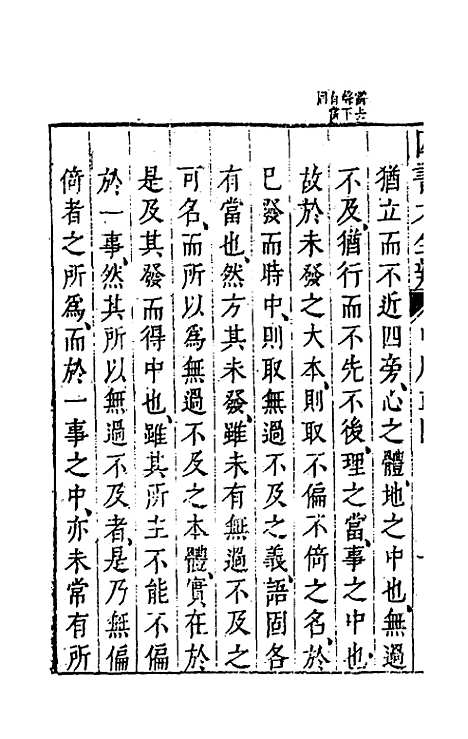 猶立而不近四旁、心之體、地之中也、無過
不及、猶行而不先不後、理之當、事之中也
故於未發之大本、則取不偏不倚之名、於
已發而時中、則取無過不及之義、語固各
有當也、然方其未發、雖未有無過不及之
可名、而所以爲無過不及之本體、實在於
是及其發而得中也、雖其所主不能不偏
於一事、然其所以無過不及者、是乃無偏
倚者之所爲、而於一事之中、亦未常有所